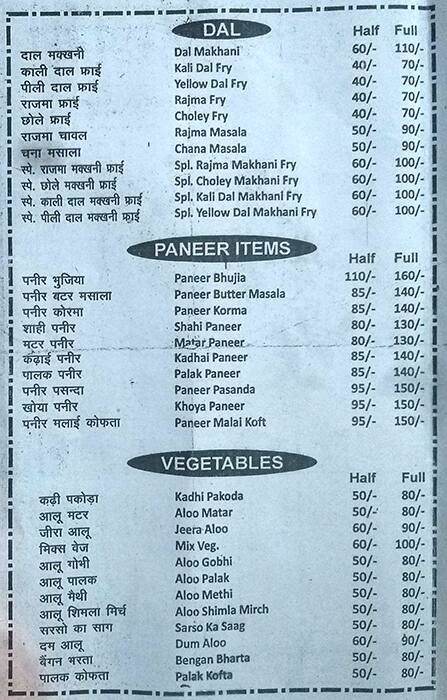 DAL
Half Full
दाल मक्खनी Dal Makhani 60/- 110/-
काली दाल फ्राई Kali Dal Fry 40/- 70/-
पीली दाल फ्राई Yellow Dal Fry 40/- 70/-
राजमा फ्राई Rajma Fry 40/- 70/-
छोले फ्राई Choley Fry 40/- 70/-
राजमा चावल Rajma Masala 50/- 90/-
चना मसाला Chana Masala 50/- 90/-
स्पे. राजमा मक्खनी फ्राई Spl. Rajma Makhani Fry 60/- 100/-
स्पे. छोले मक्खनी फ्राई Spl. Choley Makhani Fry 60/- 100/-
स्पे. काली दाल मक्खनी फ्राई Spl. Kali Dal Makhani Fry 60/- 100/-
स्पे. पीली दाल मक्खनी फ्राई Spl. Yellow Dal Makhani Fry 60/- 100/-
PANEER ITEMS
Half Full
पनीर भुजिया Paneer Bhujia 110/- 160/-
पनीर बटर मसाला Paneer Butter Masala 85/- 140/-
पनीर कोरमा Paneer Korma 85/- 140/-
शाही पनीर Shahi Paneer 80/- 130/-
मटर पनीर Matar Paneer 80/- 130/-
कढ़ाई पनीर Kadhai Paneer 85/- 140/-
पालक पनीर Palak Paneer 85/- 140/-
पनीर पसन्दा Paneer Pasanda 95/- 150/-
खोया पनीर Khoya Paneer 95/- 150/-
पनीर मलाई कोफता Paneer Malai Koft 95/- 150/-
VEGETABLES
Half Full
कढ़ी पकोड़ा Kadhi Pakoda 50/- 80/-
आलू मटर Aloo Matar 50/- 80/-
जीरा आलू Jeera Aloo 60/- 90/-
मिक्स वेज Mix Veg. 60/- 100/-
आलू गोभी Aloo Gobhi 50/- 80/-
आलू पालक Aloo Palak 50/- 80/-
आलू मैथी Aloo Methi 50/- 80/-
आलू शिमला मिर्च Aloo Shimla Mirch 50/- 80/-
सरसो का साग Sarso Ka Saag 50/- 80/-
दम आलू Dum Aloo 60/- 90/-
बैंगन भरता Bengan Bharta 50/- 80/-
पालक कोफता Palak Kofta 50/- 80/-